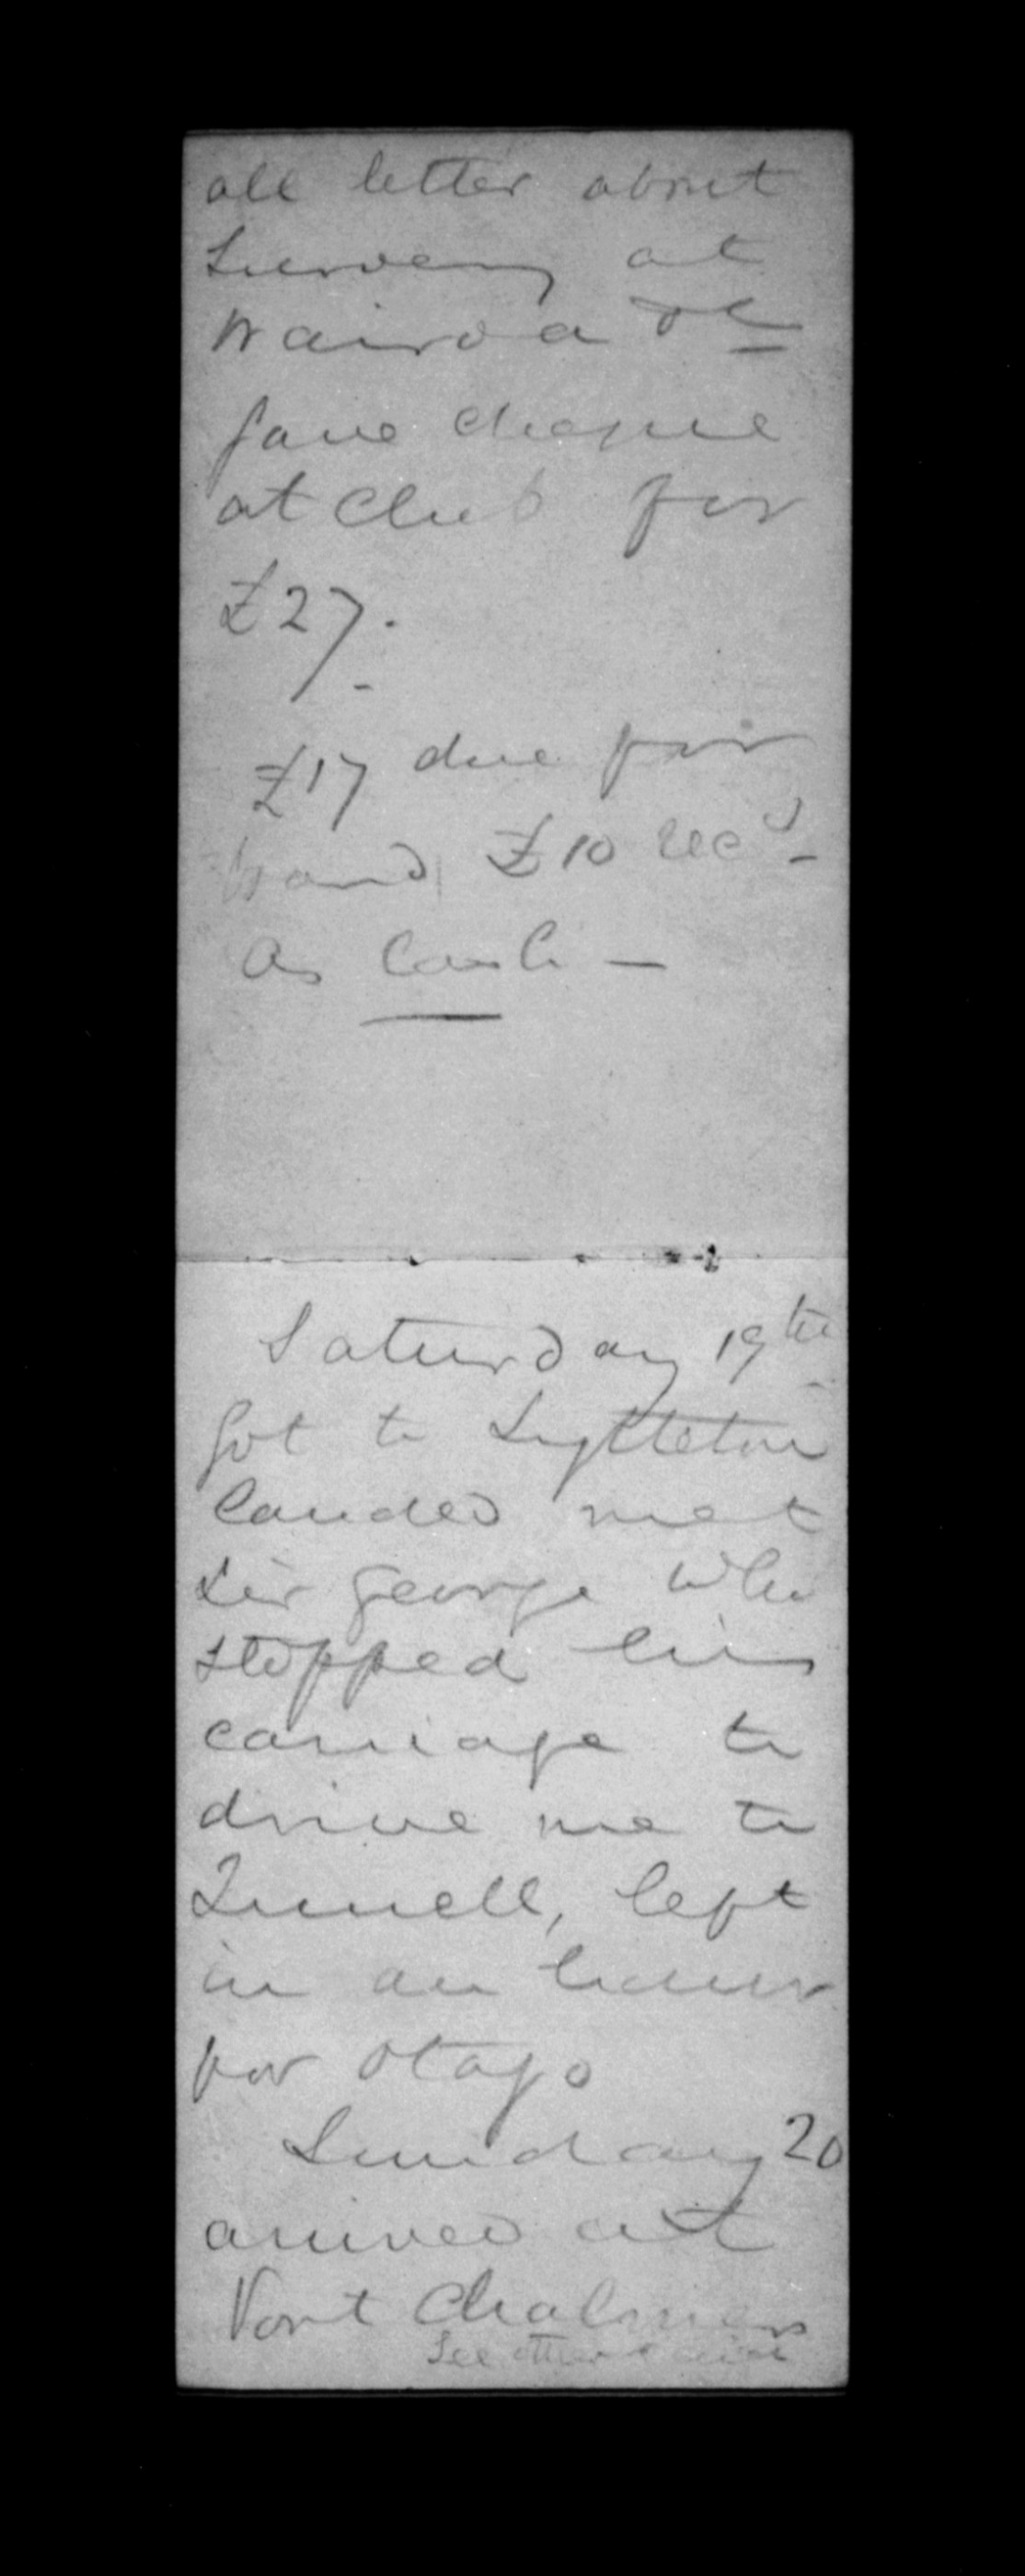 all letter about
Survey at
Wairoa &c
Gave cheque
at Club for
£27.
£17 due for
board £10 recd -
as Cash -
Saturday 19th
Got to Lyttleton
landed met
Sir George who
stopped his
carriage to
drive me to
Tunell, left
in an hour
for Otago
Sunday 20
arrived at
Port Chalmers
See other